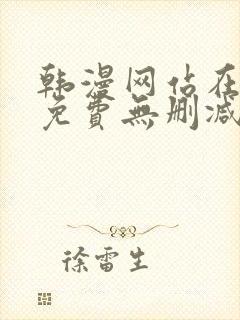 韩漫网站在
免費無删减
徐雷生